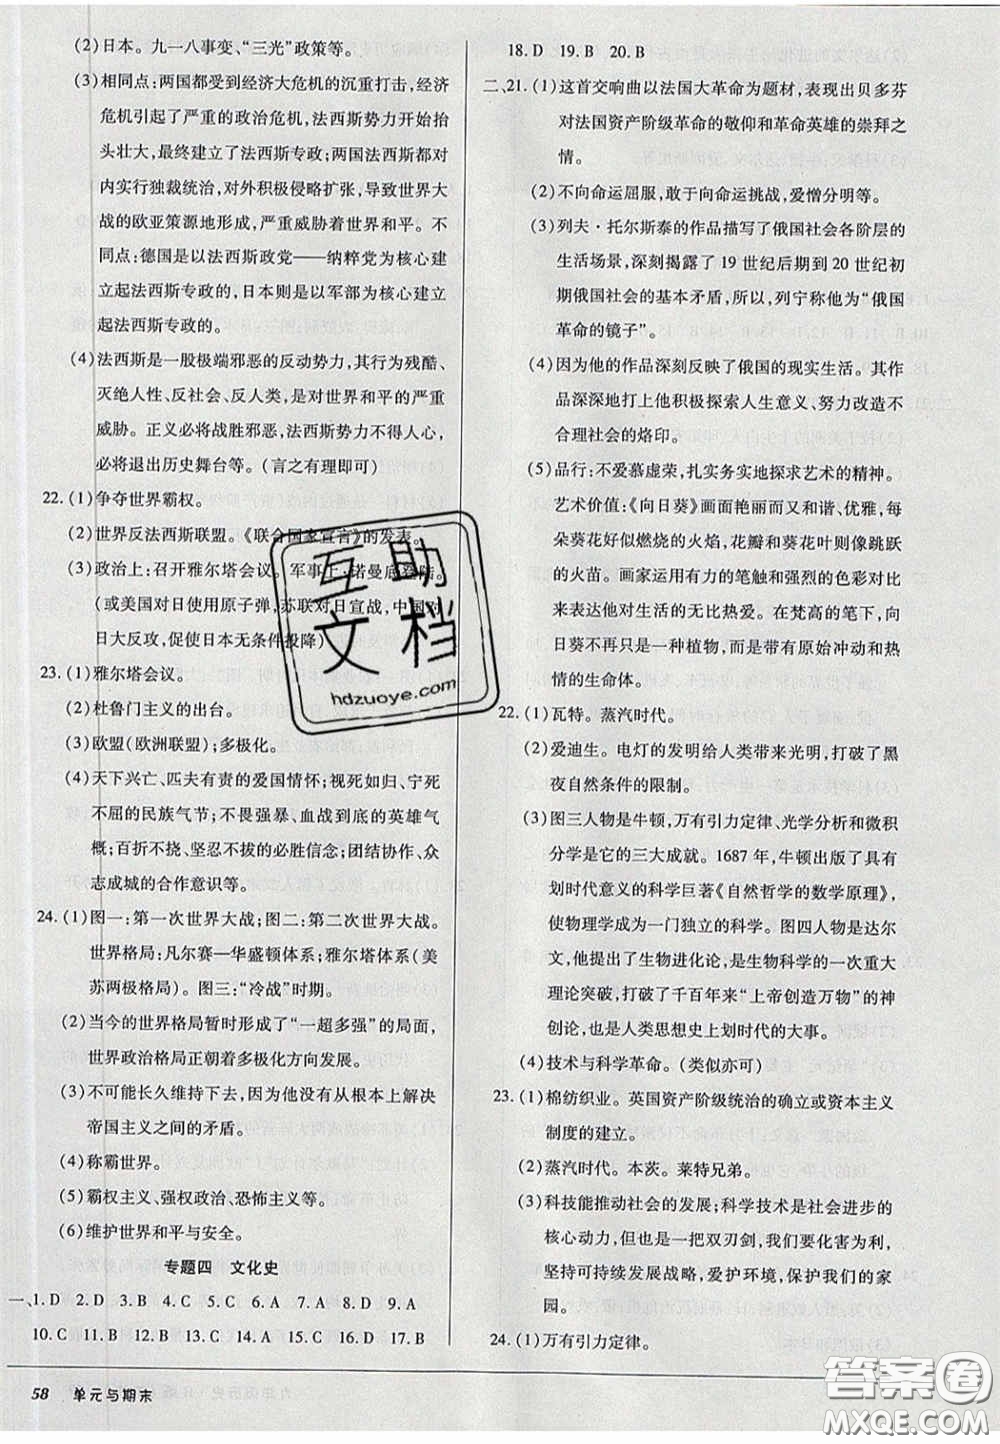 (2)日本。九一八事变、“三光”政策等。
(3)相同点:两国都受到经济大危机的沉重打击,经济
危机引起了严重的政治危机,法西斯势力开始抬
头壮大,最终建立了法西斯专政;两国法西斯都对
内实行独裁统治,对外积极侵略扩张,导致世界大
战的欧亚策源地形成,严重威胁着世界和平。不
同点:德国是以法西斯政党——纳粹党为核心建
立起法西斯专政的,日本则是以军部为核心建立
起法西斯专政的。
(4)法西斯是一股极端邪恶的反动势力,其行为残酷、
灭绝人性、反社会、反人类,是对世界和平的严重
威胁。正义必将战胜邪恶,法西斯势力不得人心,
必将退出历史舞台等。(言之有理即可)
22.(1)争夺世界霸权。
(2)世界反法西斯联盟。《联合国家宣言》的发表。
(3)政治上:召开雅尔塔会议。军事上:诺曼底登陆。
(或美国对日使用原子弹,苏联对日宣战,中国对
日大反攻,促使日本无条件投降)
23.(1)雅尔塔会议。
(2)杜鲁门主义的出台。
(3)欧盟(欧洲联盟);多极化。
(4)天下兴亡、匹夫有责的爱国情怀;视死如归、宁死
不屈的民族气节;不畏强暴、血战到底的英雄气
概;百折不挠、坚忍不拔的必胜信念;团结协作、众
志成城的合作意识等。
24.(1)图一:第一次世界大战;图二:第二次世界大战。
世界格局:凡尔赛—华盛顿体系;雅尔塔体系(美
苏两极格局)。图三:“冷战”时期。
(2)当今的世界格局暂时形成了“一超多强”的局面,
世界政治格局正朝着多极化方向发展。
(3)不可能长久维持下去,因为世界大战没有解决
帝国主义之间的矛盾。
(4)称霸世界。
(5)霸权主义、强权政治、恐怖主义等。
(6)维护世界和平与安全。
专题四 文化史
一、1. D 2. D 3. B 4. C 5. C 6. A 7. A 8. D 9. A
10. C 11. B 12. B 13. B 14. A 15. C 16. D 17. B
18. D 19. B 20. B
二、21.(1)这首交响曲以法国大革命为题材,表现出贝多芬
对法国资产阶级革命的敬仰和革命英雄的崇拜之
情。
(2)不向命运屈服,敢于向命运挑战,爱憎分明等。
(3)列夫·托尔斯泰的作品描写了俄国社会各阶层的
生活场景,深刻揭露了 19 世纪后期到 20 世纪初
期俄国社会的基本矛盾,所以,列宁称他为“俄国
革命的镜子”。
(4)因为他的作品深刻反映了俄国的现实生活。其作
品深深地打上他积极探索人生意义、努力改造不
合理社会的烙印。
(5)品行:不爱慕虚荣,扎实务实地探求艺术的精神。
艺术价值:《向日葵》画面艳丽而又和谐、优雅,每
朵葵花好似燃烧的火焰,花瓣和葵花叶则像跳跃
的火苗。画家运用有力的笔触和强烈的色彩对比
来表达他对生活的无比热爱。在梵高的笔下,向
日葵不再只是一种植物,而是带有原始冲动和热
情的生命体。
22.(1)瓦特。蒸汽时代。
(2)爱迪生。电灯的发明给人类带来光明,打破了黑
夜自然条件的限制。
(3)图三人物是牛顿,万有引力定律、光学分析和微积
分学是它的三大成就。1687 年,牛顿出版了具有
划时代意义的科学巨著《自然哲学的数学原理》,
使物理学成为一门独立的科学。图四人物是达尔
文,他提出了生物进化论,是生物科学的一次重大
理论突破,打破了千百年来“上帝创造万物”的神
创论,也是人类思想史上划时代的大事。
(4)技术与科学革命。(类似亦可)
23.(1)棉纺织业。英国资产阶级统治的确立或资本主义
制度的建立。
(2)蒸汽时代。本茨。莱特兄弟。
(3)科技能推动社会的发展;科学技术是社会进步的
核心动力,但也是一把双刃剑,我们要化害为利,
坚持可持续发展战略,爱护环境,保护我们的家
园。
24.(1)万有引力定律。
58 单元与期末
互助
文档
hdzuoye.com
答案圈
MXQE.COM